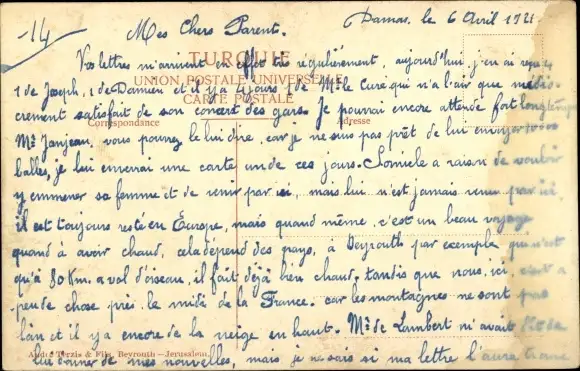 14
Damas, le 6 Avril 1921
Mes Chers Parents.
TURQUIE
Vos lettres m'arrivent en effet très régulièrement, aujourd'hui j'en ai reçu
UNION POSTALE UNIVERSELLE
1 de Joseph, 1 de Damien et il y a 4 jours 1 de Mr le Curé qui n'a l'air que médio-
CARTE POSTALE
crement satisfait de son concert des gars. Je pourrai encore attendre fort longtemps
Correspondance
Adresse
Mr Janjean, vous pourrez le lui dire, car je ne suis pas prêt de lui envoyer
balles, je lui enverrai une carte un de ces jours. a raison de vouloir
y emmener sa femme et de venir par ici, mais lui n'est jamais venu par ici.
il est toujours resté en Europe, mais quand même, c'est un beau voyage
quand à avoir chaud, cela dépend des pays, à Beyrouth par exemple qui n'est
qu'à 80 Km. à vol d'oiseau, il fait déjà bien chaud. tandis que nous, ici, c'est à
peu de chose près le midi de la France. car les montagnes ne sont pas
loin et il y a encore de la neige en haut. Mr de Lambert m'avait dit de
André Terzis & Fils, Beyrouth — Jérusalem.
lui donner de mes nouvelles, mais je ne sais si ma lettre l'aura